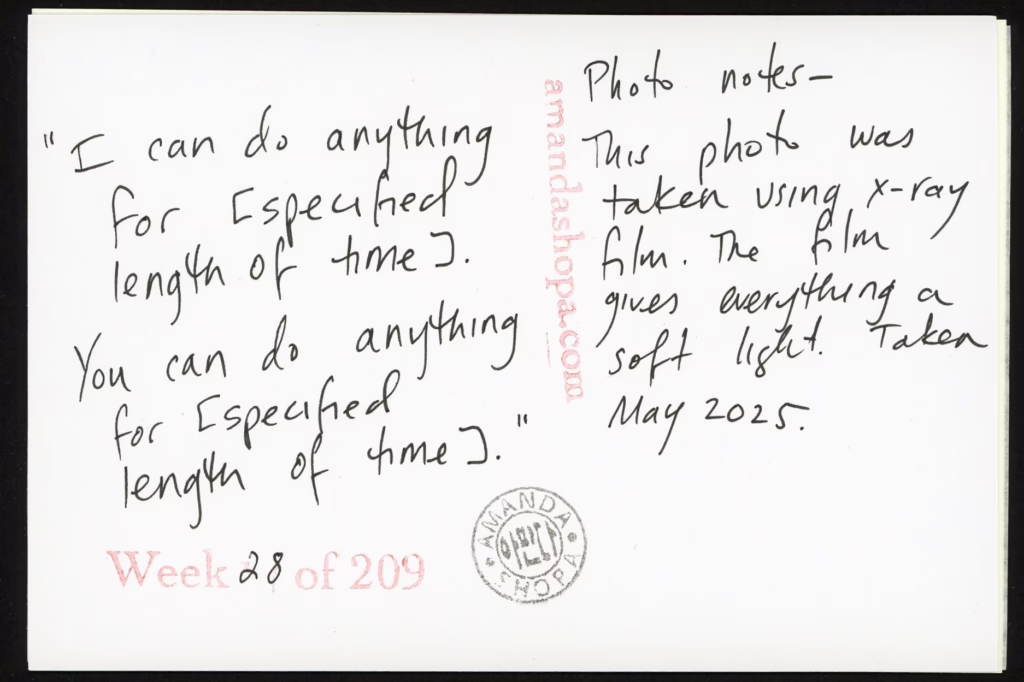 "I can do anything
for [specified
length of time].
You can do anything
for [specified
length of time]."
Week 28 of 209
amandashopa.com
Photo notes—
This photo was
taken using x-ray
film. The film
gives everything a
soft light. Taken
May 2025.
AMANDA
SHOPA
아만다